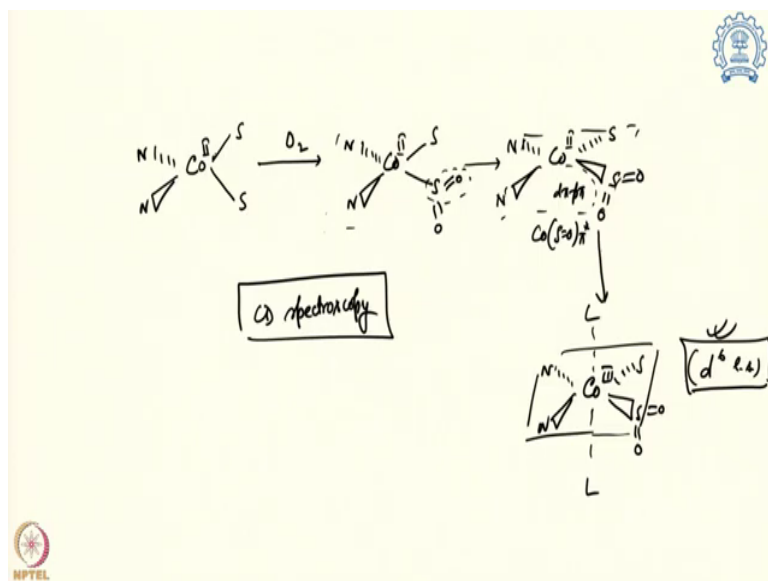 N Co II S
N S
O2
N Co II S
N S=O
O
N Co II S
N S=O
dπ-pπ O
Co(S=O)π*
CD spectroscopy
L
N Co III S
N S=O
O
L
(d6 l.s)
NPTEL